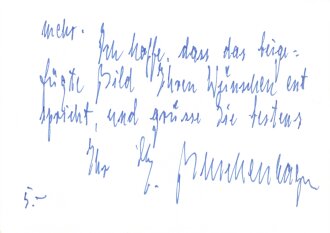 mehr. Ich hoffe, dass das beige-
fügte Bild Ihren Wünschen ent
spricht, und grüsse Sie bestens
Ihr
5.-